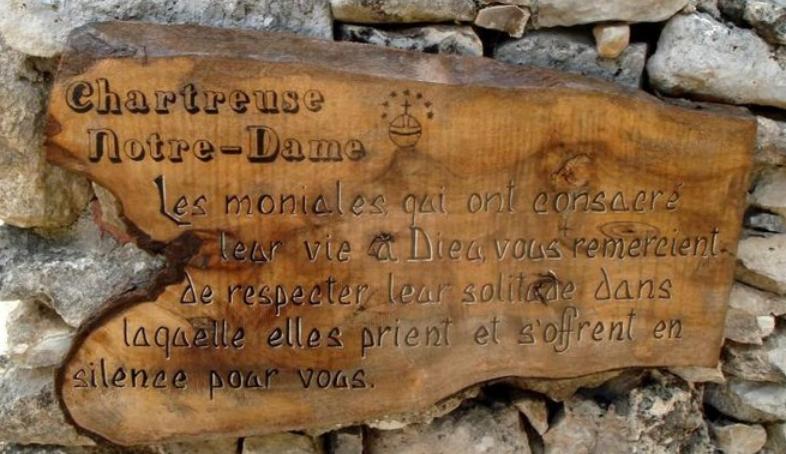 Chartreuse
Notre-Dame
Les moniales, qui ont consacré
leur vie à Dieu, vous remercient
de respecter leur solitude dans
laquelle elles prient et s'offrent en
silence pour vous.